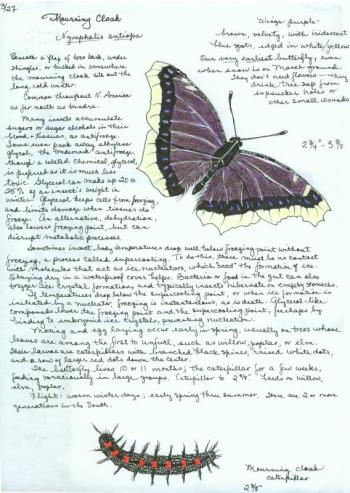 3/27
Mourning Cloak
Nymphalis antiopa
Wings purple-
brown, velvety, with iridescent
blue spots, edged in white/yellow
Our very earliest butterfly, even
when snow is on March ground.
They don't need flowers - they
drink tree sap from
sapsucker holes or
other small wounds
2 3/4" - 3 1/2
Beneath a flap of tree bark, under
shingles, or tucked in somewhere
the mourning cloak sits out the
long, cold winter.
Common throughout N. America
as far north as tundra.
Many insects accumulate
sugars or sugar alcohols in their
blood + tissues, as antifreeze.
Some even pack away ethylene
glycol, the trademark antifreeze,
though a related chemical, glycerol,
is preferred as it is much less
toxic. Glycerol can make up 20 to
25% of an insect's weight in
winter. Glycerol keeps cells from freezing,
and limits damage when tissues do
freeze. An alternative, dehydration,
also lowers freezing point, but can
disrupt metabolic processes.
Sometimes insect body temperatures drop well below freezing point without
freezing, a process called supercooling. To do this, there must be no contact
with molecules that act as ice nucleators, which "seed" the formation of ice.
Staying dry in a waterproof cover helps. Bacteria or food in the gut can also
trigger ice crystal formation, and typically insects hibernate on empty stomachs.
If temperatures drop below the supercooling point, or when ice formation is
initiated by a nucleator, freezing is instantaneous, as is death. Glycerol-like
compounds lower the freezing point and the supercooling point, perhaps by
binding to embryonic ice crystals, preventing nucleation.
Mating and egg laying occur early in spring, usually on trees whose
leaves are among the first to unfurl, such as willow, poplar, or elm.
Their larvae are caterpillars with branched black spines, raised white dots,
and a row of larger red dots down the center.
The butterfly lives 10 or 11 months, the caterpillar for a few weeks,
feeding voraciously in large groups. Caterpillar to 2 3/8". Feeds on willow,
elm, poplar.
Flight: warm winter days, early spring thru summer. There are 2 or more
generations in the South.
Mourning cloak
caterpillar
2 3/8"